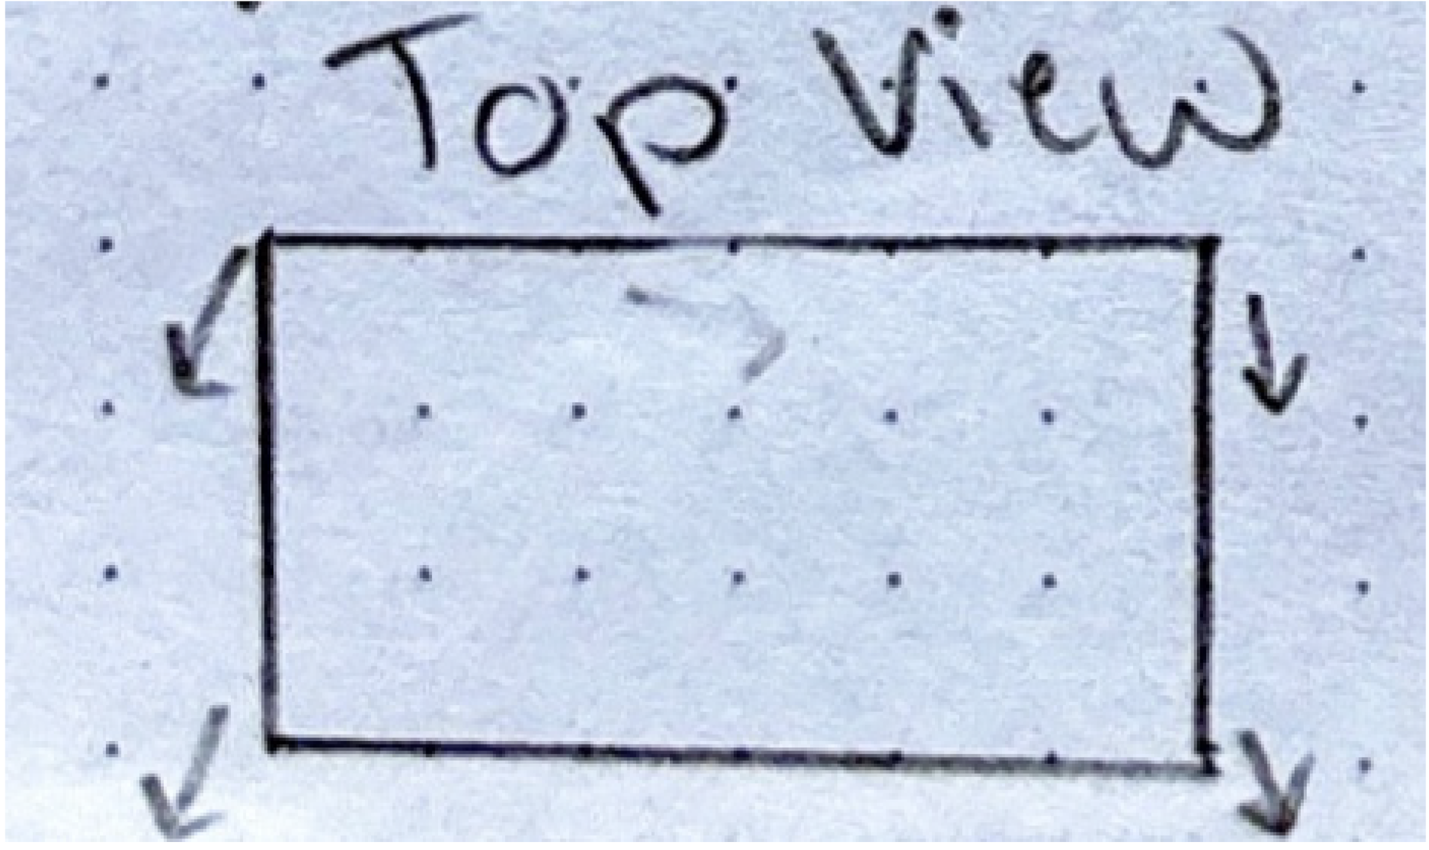 Top View